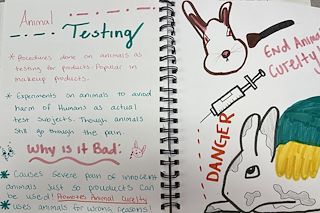 Animal
Testing
* Procedures done on animals as
testing for products. Popular in
makeup products.
* Experiments on animals to avoid
harm of Humans as actual
test subjects. Though animals
still go through the pain.
Why is it Bad:
* Causes Severe pain of innocent
animals just so products can
be used! Promotes Animal Curelty
* uses animals for wrong reasons!
End Animal
Curelty!
DANGER